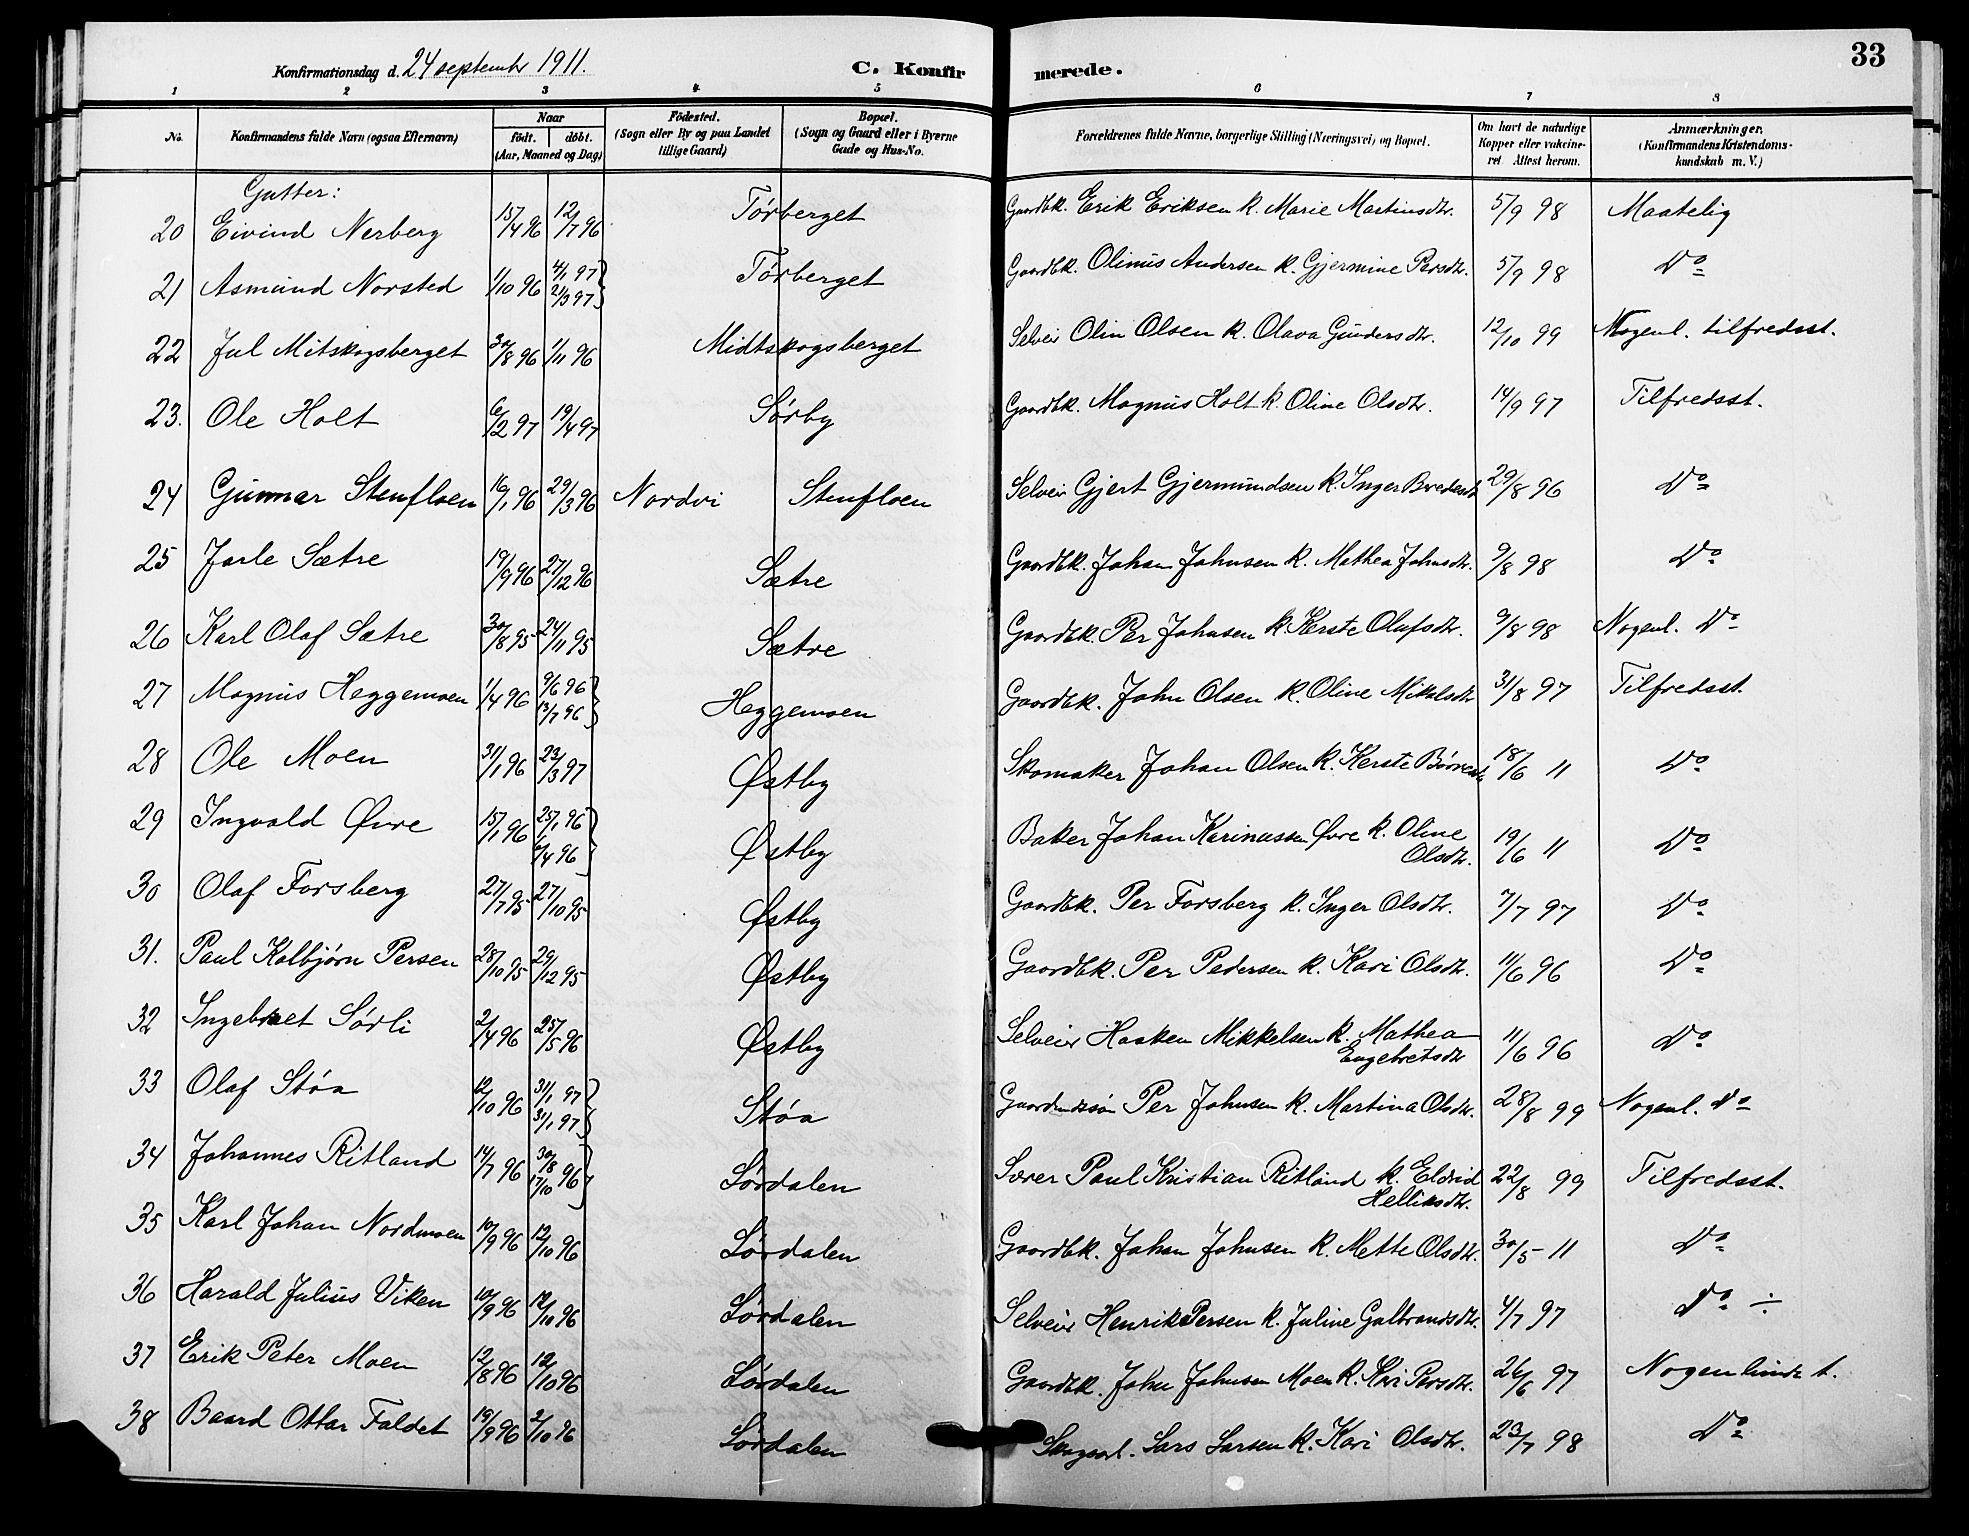 33
Konfirmationsdag d. 24 september 1911. C. Konfirmerede.
1 2 3 4 5 6 7 8
No. Konfirmandens fulde Navn (ogsaa Efternavn) Naar født. døbt. (Aar, Maaned og Dag) Fødested. (Sogn eller By og paa Landet tillige Gaard) Bopæl. (Sogn og Gaard eller i Byerne Gade og Hus-No. Forældrenes fulde Navne, borgerlige Stilling (Næringsvei) og Bopæl. Om havt de naturlige Kopper eller vakcineret Attest herom. Anmærkninger, (Konfirmandens Kristendomskundskab m. V.)
Gutter:
20 Eivind Nerberg 15/4 96 12/7 96 Tørberget Gaardbk. Erik Eriksen k. Marie Martinsdtr. 5/9 98 Maatelig
21 Asmund Norsted 1/10 96 4/1 97 2/3 97 Tørberget Gaardbk. Olinus Andersen k. Gjermine Persdtr. 5/9 98 Do
22 Jul Mitskogsberget 30/8 96 1/11 96 Midtskogsberget Selveir Olin Olsen k. Olava Gundersdtr. 12/10 99 Nogenl. tilfredsst.
23. Ole Holt 6/2 97 19/4 97 Sørby Gaardbk. Magnus Holt k. Oline Olsdtr. 14/9 97 Tilfredsst.
24 Gunnar Stenfloen 16/1 96 29/3 96 Nordvi Stenfloen Selveir Gjert Gjermundsen k. Inger Bredesdt 29/8 96 Do
25 Jarle Sætre 19/9 96 27/12 96 Sætre Gaardbk. Johan Johnsen k. Mathea Johnsdtr. 9/8 98 Do
26 Karl Olaf Sætre 30/8 95 24/11 95 Sætre Gaardbk. Per Johnsen k. Kerste Olafsdtr. 9/8 98 Nogenl. Do
27 Magnus Heggemoen 1/4 96 9/6 96 13/7 96 Heggemoen Gaardbk. John Olsen k. Oline Mikalsdtr 31/8 97 Tilfredsst.
28 Ole Moen 31/1 96 23/3 97 Østby Skomaker Johan Olsen k. Kerste 18/6 11 Do
29 Ingvald Øvre 15/1 96 25/1 96 6/4 96 Østby Baker Johan Karinussen Øvre k. Oline Olsdtr. 19/6 11 Do
30 Olaf Forsberg 27/7 95 27/10 95 Østby Gaardbk. Per Forsberg k. Inger Olsdtr. 7/7 97 Do
31. Paul Kolbjørn Persen 28/10 95 29/12 95 Østby Gaardbk. Per Pedersen k. Kari Olsdtr. 11/6 96 Do
32 Ingebret Sørli 2/4 96 25/5 96 Østby Selveir Haaken Mikkelsen k. Mathea Engebretsdtr 11/6 96 Do
33 Olaf Støa 12/10 96 31/1 97 31/1 97 Støa Per Johnsen k. Martina Olsdtr. 28/8 99 Nogenl. do
34 Johannes Ritland 14/7 96 30/8 17/10 96 Lørdalen Lærer Paul Kristian Ritland k. Eldrid Helliksdtr. 22/8 99 Tilfredsst.
35 Karl Johan Nordmoen 10/9 96 12/10 96 Lørdalen Gaardbk. Johan Johnsen k. Mette Olsdtr. 30/5 11 Do
36 Harald Julius Viken 10/9 96 12/10 96 Lørdalen Selveir Henrik Persen k. Juline Galbrandsdtr. 4/7 97 Do ÷
37 Erik Peter Moen 12/8 96 12/10 96 Lørdalen Gaardbk. John Johnsen Moen k. Kari Persdtr. 26/6 97 Nogenlunde t.
38 Baard Ottar Faldet 19/9 96 2/10 96 Lørdalen Skogsarb. Lars Larsen k. Kari Olsdtr. 23/7 98 Do